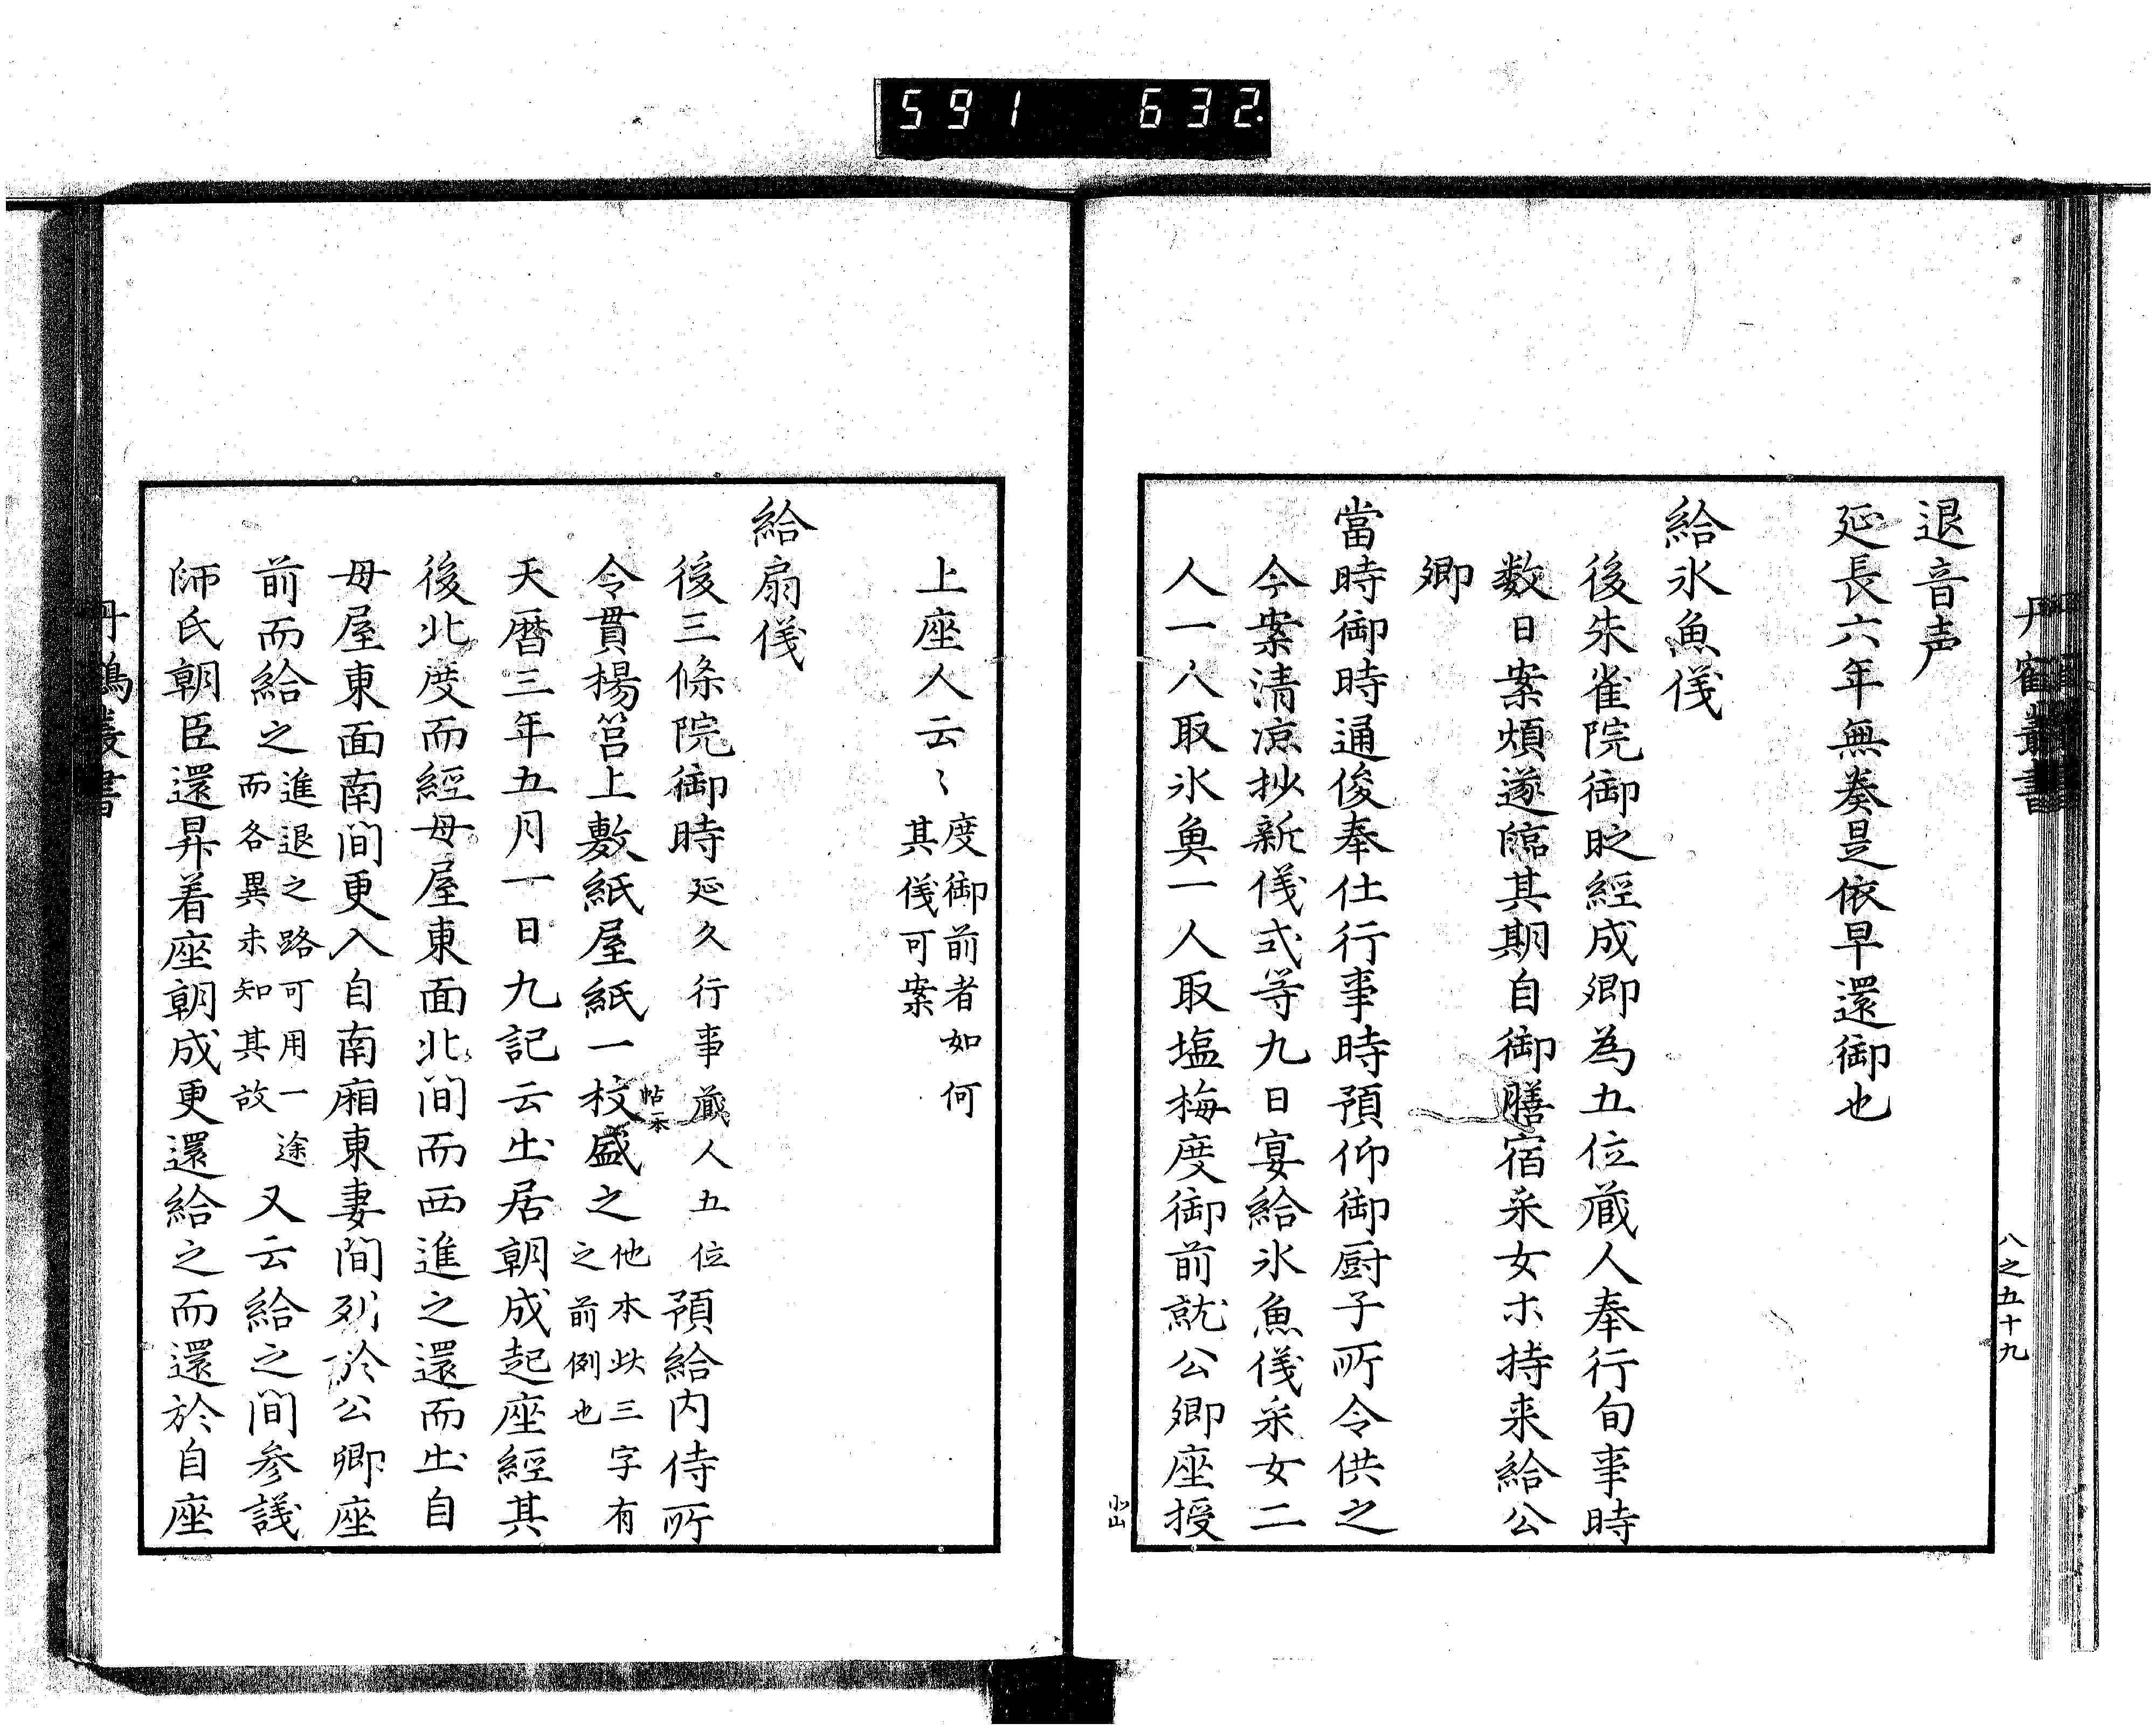 591 632.
丹寉叢書
八之五十九
退音声
延長六年無奏是依早還御也
給氷魚儀
後朱雀院御時經成卿為五位蔵人奉行旬事時
数日案煩遂臨其期自御膳宿采女木持来給公
卿
當時御時通俊奉仕行事時預仰御厨子所令供之
今案清凉抄新儀式等九日宴給氷魚儀采女二
人一人取氷魚一人取塩梅度御前就公卿座授
小山
上座人云〻度御前者如何
其儀可案
給扇儀
後三條院御時延久行事蔵人五位預給内侍所
令貫楊筥上敷紙屋紙一枚盛之他本此三字有
之前例也
帖一本
天暦三年五月一日九記云出居朝成起座經其
後北度而經母屋東面北間而西進之還而出自
母屋東面南間更入自南廂東妻間列於公卿座
前而給之進退之路可用一途
而各異未知其故又云給之間参議
師氏朝臣還昇着座朝成更還給之而還於自座